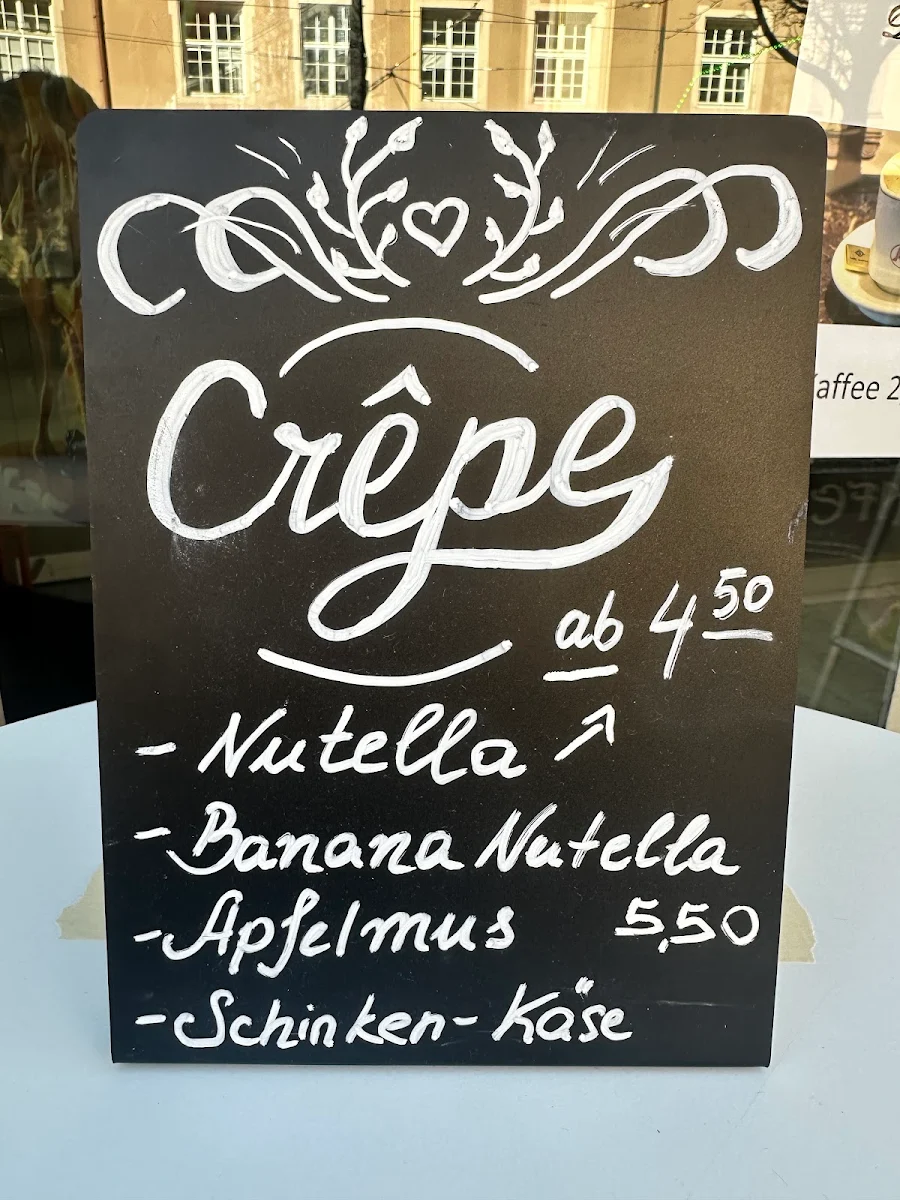 Crêpe
ab 4 50
- Nutella ↗
- Banana Nutella
- Apfelmus 5,50
- Schinken-Käse
affee 2